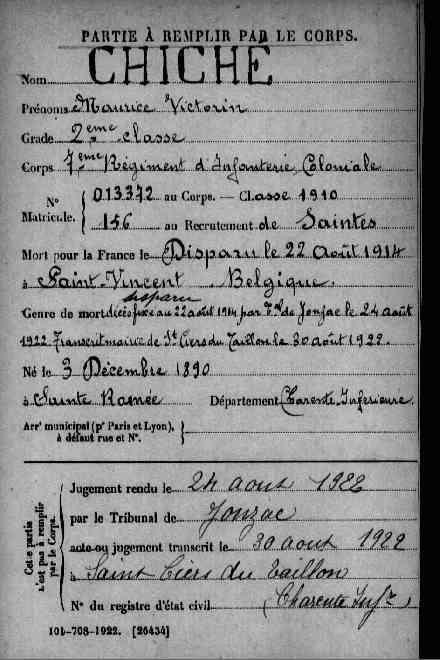 PARTIE À REMPLIR PAR LE CORPS.
Nom CHICHE
Prénoms Maurice Victorin
Grade 2eme classe
Corps 7eme Régiment d'Infanterie Coloniale
N° 013372 au Corps. — Classe 1910
Matricule. 156 au Recrutement de Saintes
Mort pour la France le Disparu le 22 août 1914
à Saint-Vincent Belgique.
disparu
Genre de mort décès fixé au 22 août 1914 par Tal de Jonzac le 24 août
1922. Transcrit mairie de St Ciers du Taillon le 30 août 1922.
Né le 3 Décembre 1890
à Sainte Ramée Département Charente-Inférieure.
Arrt municipal (pr Paris et Lyon),
à défaut rue et N°.
Cette partie
n'est pas à remplir
par le Corps.
Jugement rendu le 24 aout 1922
par le Tribunal de Jonzac
acte ou jugement transcrit le 30 aout 1922
à Saint Ciers du Taillon
N° du registre d'état civil (Charente Infre)
101-708-1922. [26434]